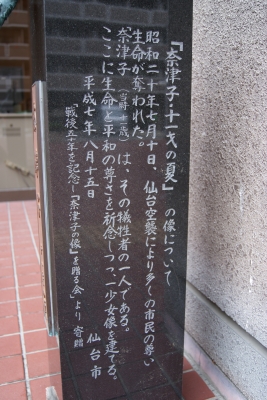 「奈津子・十一才の夏」の像について
昭和二十年七月十日、仙台空襲により多くの市民の尊い
生命が奪われた。
「奈津子(当時十一歳)」は、その犠牲者の一人である。
ここに生命と平和の尊さを祈念しつつ、一少女像を建てる。
平成七年八月十五日
仙台市
「戦後五十年を記念し「奈津子の像」を贈る会」より寄贈